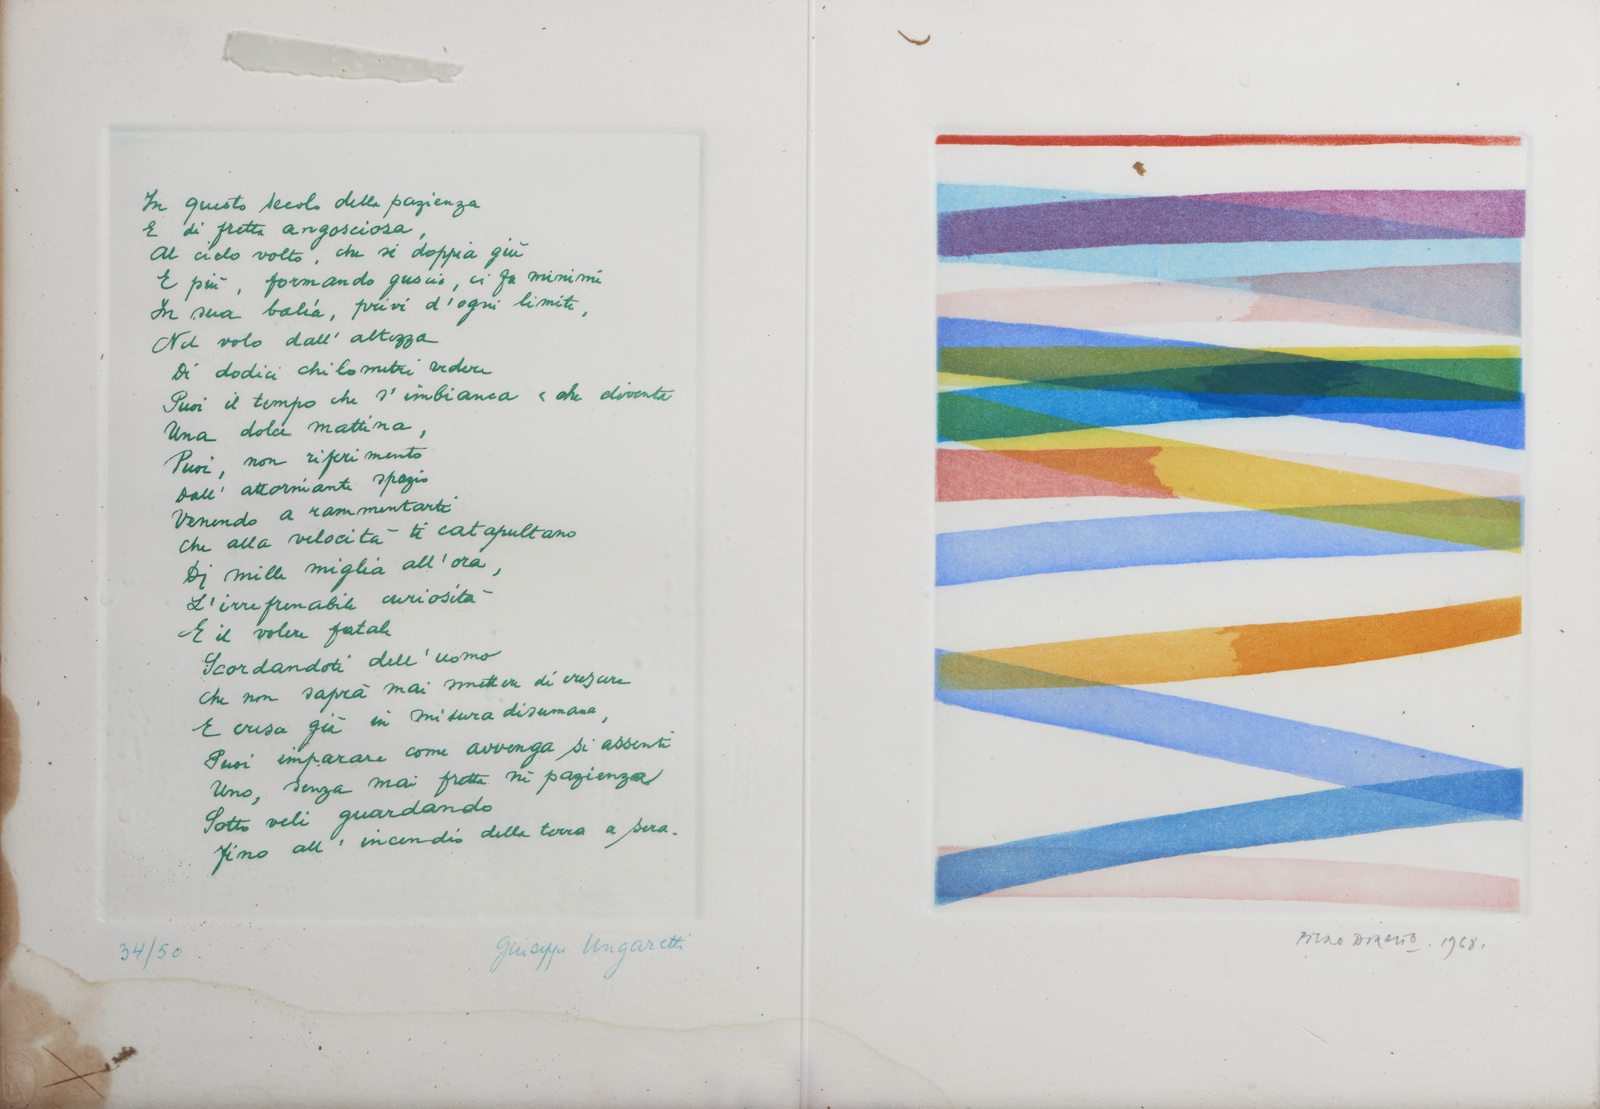 In questo secolo della pazienza
E di fretta angosciosa,
Al cielo volto, che si doppia giù
E più, formando guscio, ci fa minimi
In sua balìa, privi d'ogni limite,
Nel volo dall' altezza
Di dodici chilometri vedere
Puoi il tempo che s'imbianca e che diventa
Una dolce mattina,
Puoi, non riferimento
Dall' attorniante spazio
Venendo a rammentarti
Che alla velocità ti catapultano
Di mille miglia all'ora,
L'irrefrenabile curiosità
E il volere fatale
Scordandoti dell'uomo
Che non saprà mai smettere di crescere
E cresce già in misura disumana,
Puoi imparare come avvenga si assenti
Uno, senza mai fretta nè pazienza
Sotto veli guardando
Fino all'incendio della terra a sera.
34/50
Giuseppe Ungaretti
Piero Dorazio. 1968.